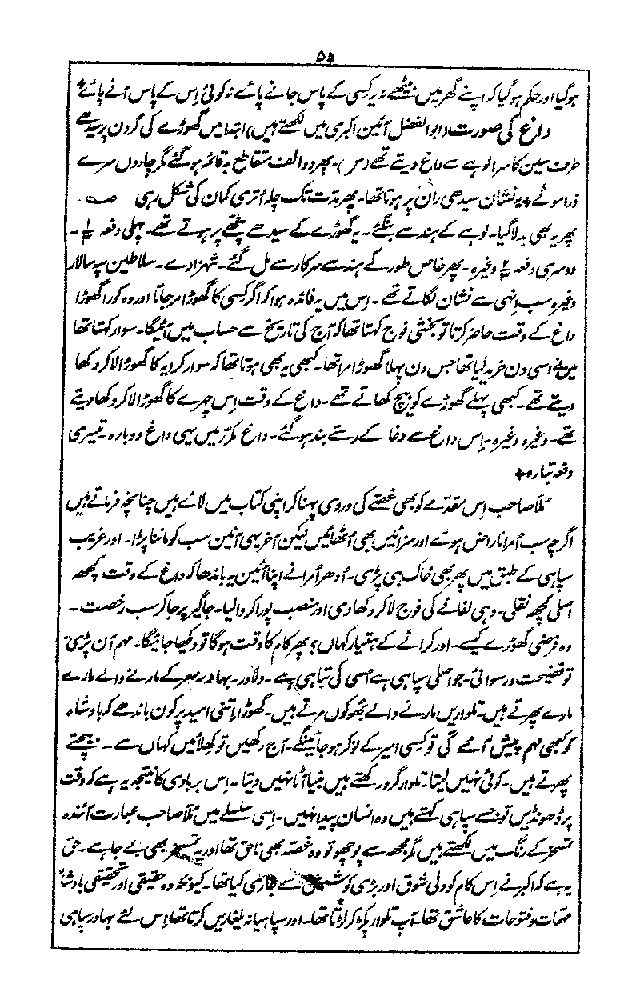 ۵۸
ہوگیا اور حکم ہوگیا کہ اپنے گھر میں بیٹھے نہ یہ کسی کے پاس جانے پائے نہ کوئی اس کے پاس آنے پائے +
داغ کی صورت (ابوالفضل آئین اکبری میں لکھتے ہیں) ابتدا میں گھوڑے کی گردن پر سیدھے
طرف سین کا سرا لوہے سے داغ دیتے تھے (س) پھر دو الف متقاطع بہ قائمہ ہوگئے مگر چاروں سرے
ذرا موٹے + یہ نشان سیدھی ران پر ہوتا تھا۔ پھر مدت تک چلہ اتری کمان کی شکل رہی
پھر یہ بھی بدلا گیا۔ لوہے کے ہندسے بن گئے۔ یہ گھوڑے کے سیدھے پٹھے پر ہوتے تھے۔ پہلی دفعہ
دوسری دفعہ وغیرہ۔ پھر خاص طور کے ہندسے سرکار سے مل گئے۔ شہزادے۔ سلاطین سپہ سالار
وغیرہ سب انہی سے نشان لگاتے تھے۔ اس میں یہ فائدہ ہوا کہ اگر کسی کا گھوڑا مر جاتا اور وہ کورا گھوڑا
داغ کے وقت حاضر کرتا تو بخشی فوج کہتا تھا کہ آج کی تاریخ سے حساب میں آئیگا۔ سوار کہتا تھا
میں نے اسی دن خرید لیا تھا جس دن پہلا گھوڑا مرا تھا۔ کبھی یہ بھی ہوتا تھا کہ سوار کرایہ کا گھوڑا لا کر دکھا
دیتے تھے۔ کبھی پہلے گھوڑے کو بیچ کھاتے تھے۔ داغ کے وقت اس چہرے کا گھوڑا لا کر دکھا دیتے
تھے۔ وغیرہ وغیرہ۔ اس داغ سے دغا کے رستے بند ہوگئے۔ داغ مکرر میں یہی داغ دوبارہ تیسری
دفعہ تبارہ +
ملا صاحب اس مقدمے کو بھی غصے کی وردی پہنا کر اپنی کتاب میں لائے ہیں چنانچہ فرماتے ہیں
اگرچہ سب امرا ناراض ہوئے اور سزائیں بھی اٹھائیں لیکن آخر یہی آئین سب کو ماننا پڑا۔ اور غریب
سپاہی کے طبق میں پھر بھی خاک ہی پڑی۔ اُدھر اُمرا نے اپنا آئین یہ باندھا کہ داغ کے وقت کچھ
اصلی کچھ نقلی۔ وہی لفافے کی فوج لا کر دکھا دی اور منصب پورا کروا لیا۔ جاگیر پر جا کر سب رخصت۔
وہ فرضی گھوڑے کیسے۔ اور کرائے کے ہتیار کہاں؟ پھر کام کا وقت ہوگا تو دیکھا جائیگا۔ مہم آن پڑی
تو فضیحت و رسوائی۔ جو اصلی سپاہی ہے اُسی کی تباہی ہے۔ دلاور۔ بہادر معرکے مارنے والے مارے
مارے پھرتے ہیں۔ تلواریں مارنے والے بھوکوں مرتے ہیں۔ گھوڑا اتنی امید پر کون باندھے کہ بادشاہ
کو کبھی مہم پیش آئے گی تو کسی امیر کے نوکر ہو جائینگے۔ آج رکھیں تو کھلائیں کہاں سے۔ بیچتے
پھرتے ہیں۔ کوئی نہیں لیتا۔ تلوار گرو رکھتے ہیں بنیا آٹا نہیں دیتا۔ اس بربادی کا نتیجہ یہ ہے کہ وقت
پر ڈھونڈیں تو جسے سپاہی کہتے ہیں وہ انسان پیدا نہیں۔ اسی سلسلے میں ملا صاحب عبارت آئندہ
تمسخر کے رنگ میں لکھتے ہیں مگر مجھ سے پوچھو تو وہ غصہ بھی ناحق تھا اور یہ تمسخر بھی بے جا ہے۔ حق
یہ ہے کہ اکبر نے اس کام کو دلی شوق اور بڑی کوشش سے جاری کیا تھا۔ کیونکہ وہ حقیقی اور تحقیقی بادشاہ
مہمات و فتوحات کا عاشق تھا۔ آپ تلوار پکڑ کر لڑتا تھا۔ اور سپاہیانہ یلغاریں کرتا تھا اس لئے بہادر سپاہی